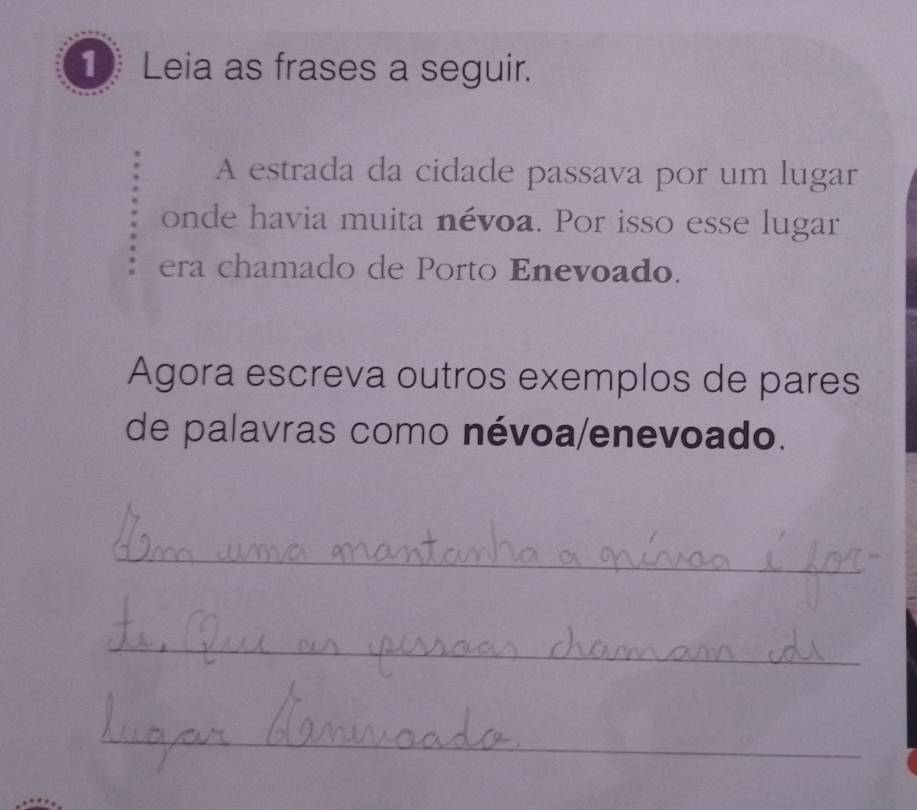 1 Leia as frases a seguir.
A estrada da cidade passava por um lugar
onde havia muita névoa. Por isso esse lugar
era chamado de Porto Enevoado.
Agora escreva outros exemplos de pares
de palavras como névoa/enevoado.
Em uma mantanha a névoa é for-
te. Que as pessoas chamam de
lugar Enevoado.